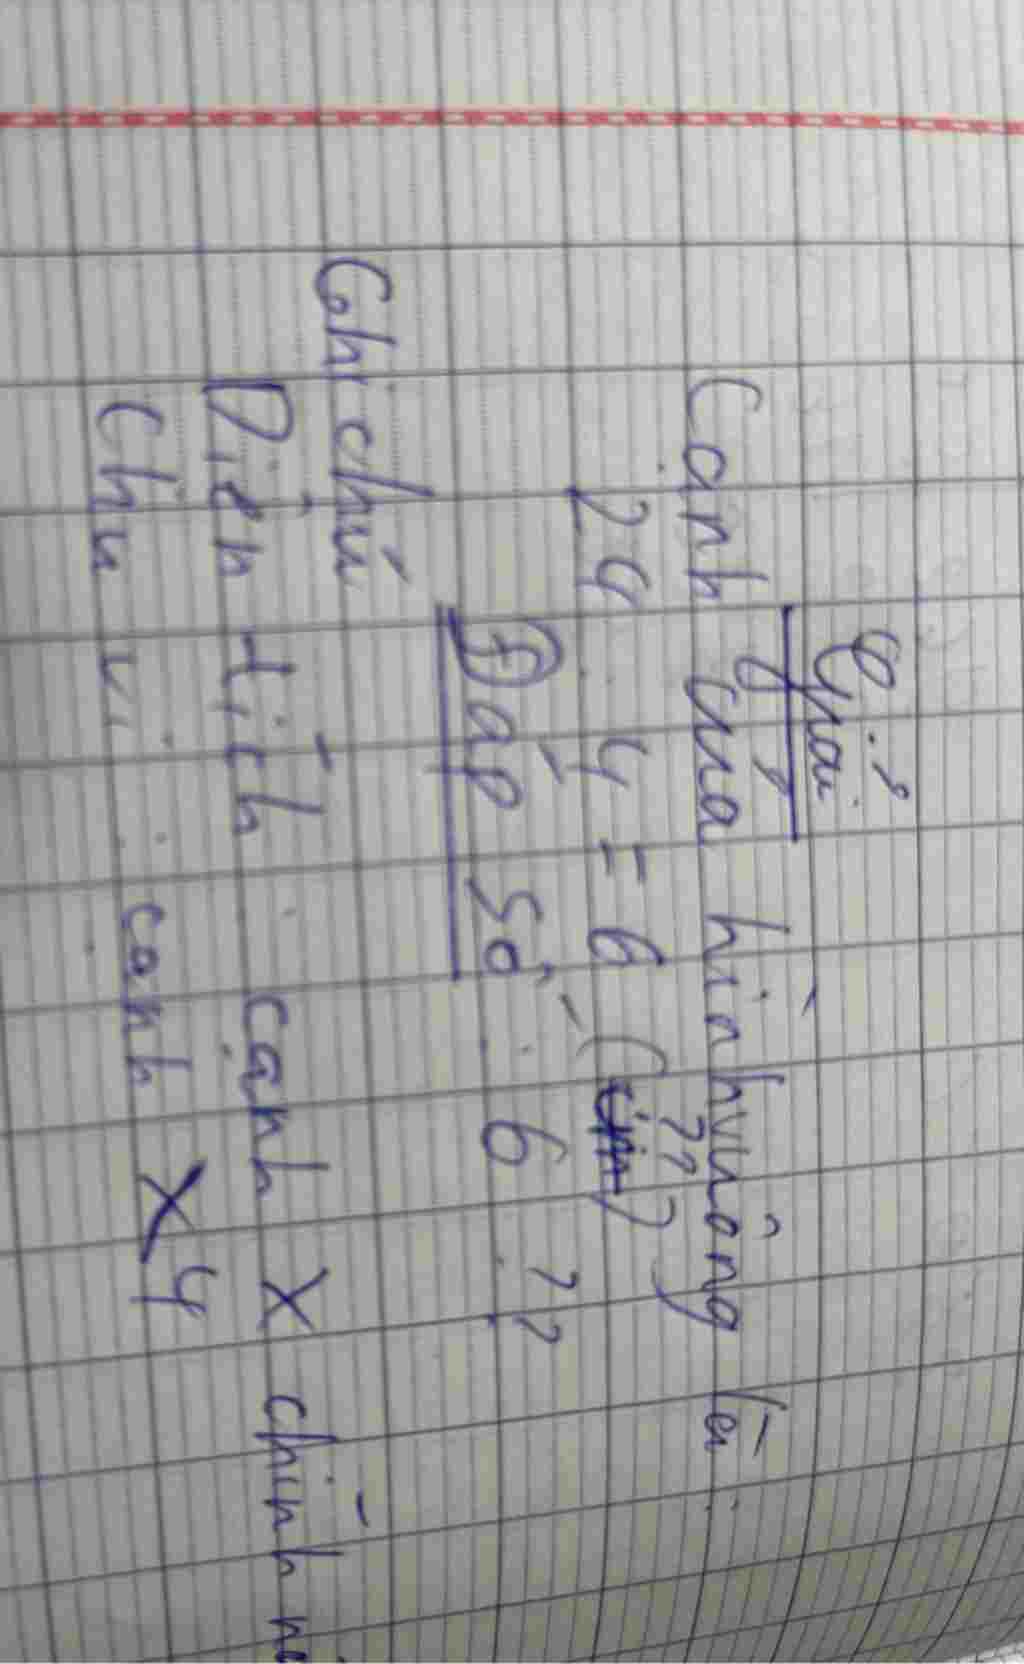 Giải
Cạnh của hình vuông là :
24 : 4 = 6 (cm) ??
Đáp số : 6 ??
Ghi chú
Diện tích : cạnh X chính
Chu vi : cạnh X 4